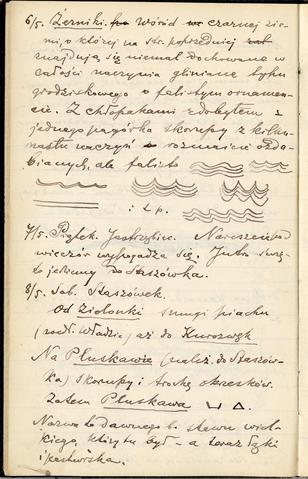 6/5. Żerniki. Wśród czarnej zie-
mi, o której na str. poprzedniej
znajdują się niemal dochowane w
całości naczynia gliniane typu
grodziskowego o falistym ornamen-
cie. Z chłopakami zdobyłem z
jednego pagórka skorupy z kilku-
nastu naczyń rozmaicie ozdo-
bianych, ale falisto
i t. p.
7/5. Piątek. Jastrzębiec. Nareszcie pod
wieczór wypogadza się. Jutro
jedziemy do Staszówka.
8/5. Sob. Staszówek.
Od Zielonki smugi piachu
(wedł. Władzia) aż do Kurozwęk
Na Pluskawie (należ. do Staszów-
ka) skorupy i trochę okrzesków.
Zatem Pluskawa
Nazwa to dawnego b. stawu wiel-
kiego, który tu był – a teraz łąki
i pastwiska.